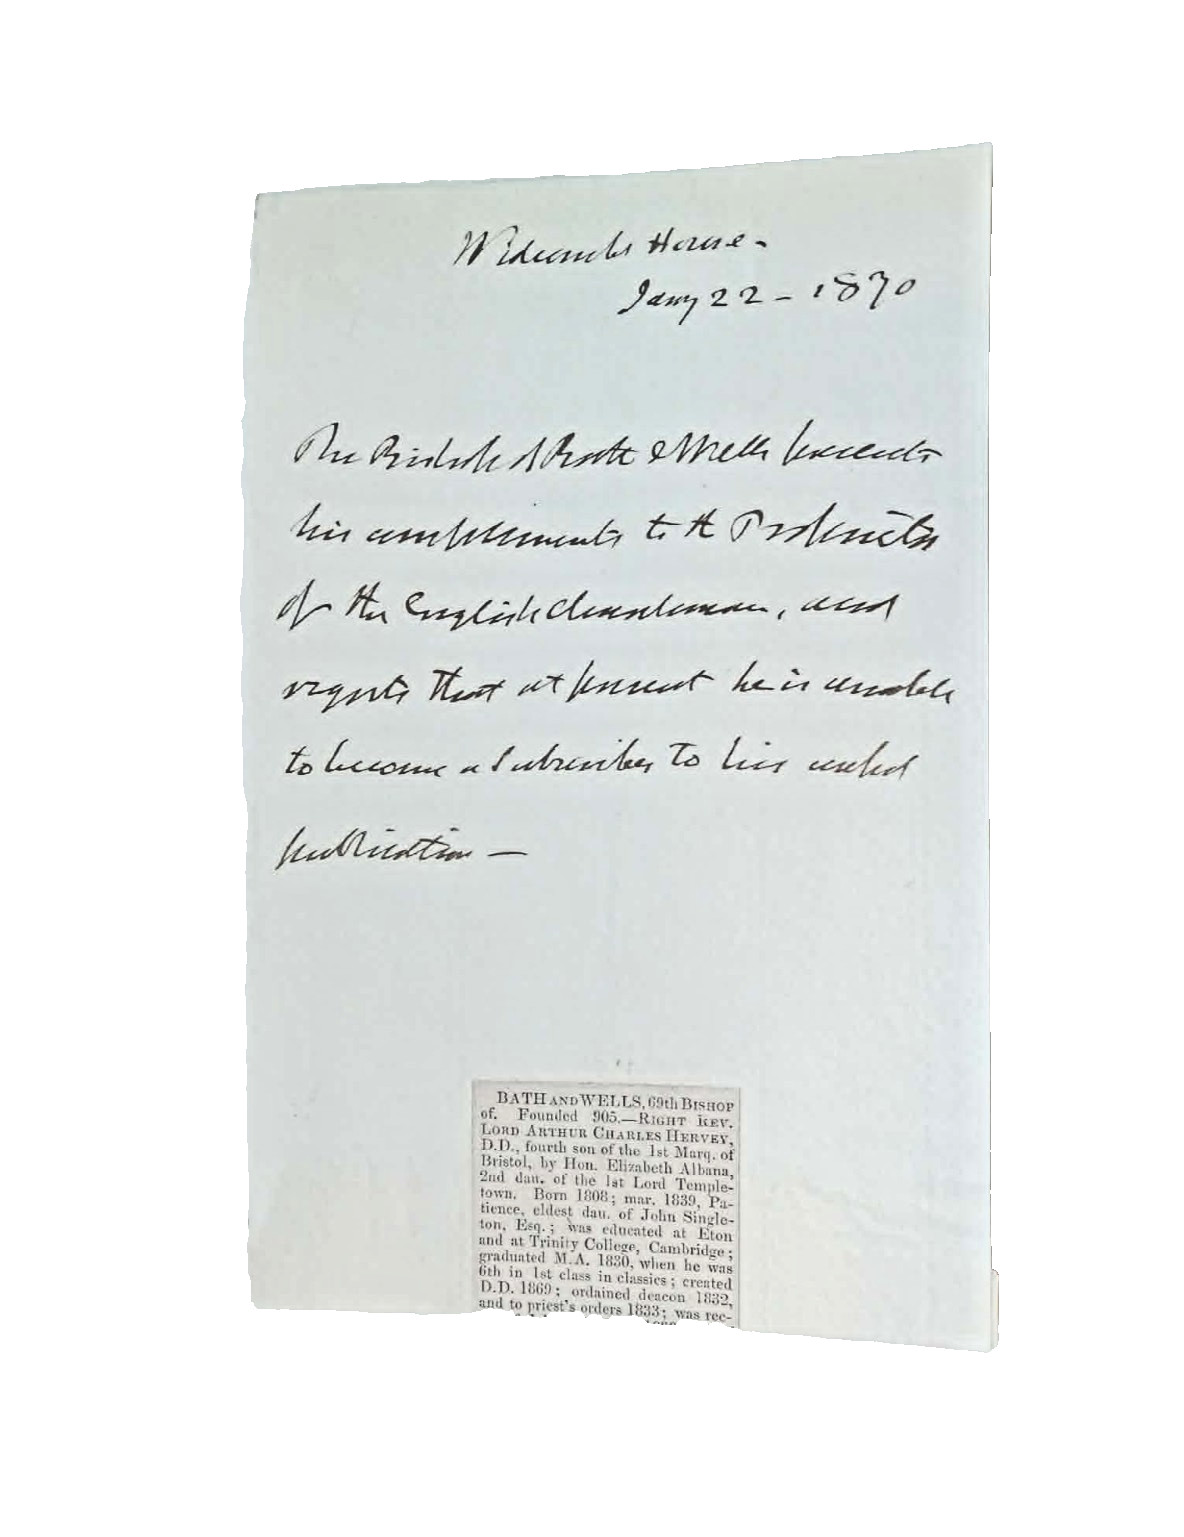 Widcombe House -
Jany 22 - 1870
The Bishop of Bath & Wells presents
his compliments to the Proprietor
of the English Churchman, and
regrets that at present he is unable
to become a Subscriber to his useful
publication —
BATH AND WELLS, 69th BISHOP
of. Founded 905.—RIGHT REV.
LORD ARTHUR CHARLES HERVEY,
D.D., fourth son of the 1st Marq. of
Bristol, by Hon. Elizabeth Albana,
2nd dau. of the 1st Lord Temple-
town. Born 1808; mar. 1839, Pa-
tience, eldest dau. of John Single-
ton, Esq.; was educated at Eton
and at Trinity College, Cambridge;
graduated M.A. 1830, when he was
6th in 1st class in classics; created
D.D. 1869; ordained deacon 1832,
and to priest's orders 1833; was rec-